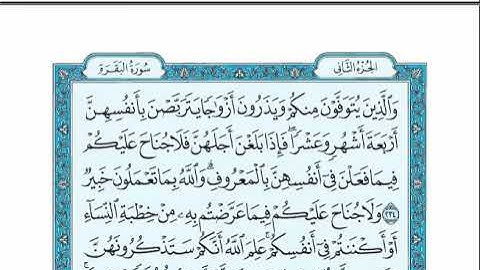 سُورَةُ البَقَرَةِ الجُزْءُ الثَّانِي
وَالَّذِينَ يُتَوَفَّوْنَ مِنكُمْ وَيَذَرُونَ أَزْوَاجًا يَتَرَبَّصْنَ بِأَنفُسِهِنَّ
أَرْبَعَةَ أَشْهُرٍ وَعَشْرًا ۖ فَإِذَا بَلَغْنَ أَجَلَهُنَّ فَلَا جُنَاحَ عَلَيْكُمْ
فِيمَا فَعَلْنَ فِي أَنفُسِهِنَّ بِالْمَعْرُوفِ ۗ وَاللَّهُ بِمَا تَعْمَلُونَ خَبِيرٌ
٢٣٤ وَلَا جُنَاحَ عَلَيْكُمْ فِيمَا عَرَّضْتُم بِهِ مِنْ خِطْبَةِ النِّسَاءِ
أَوْ أَكْنَنتُمْ فِي أَنفُسِكُمْ ۚ عَلِمَ اللَّهُ أَنَّكُمْ سَتَذْكُرُونَهُنَّ